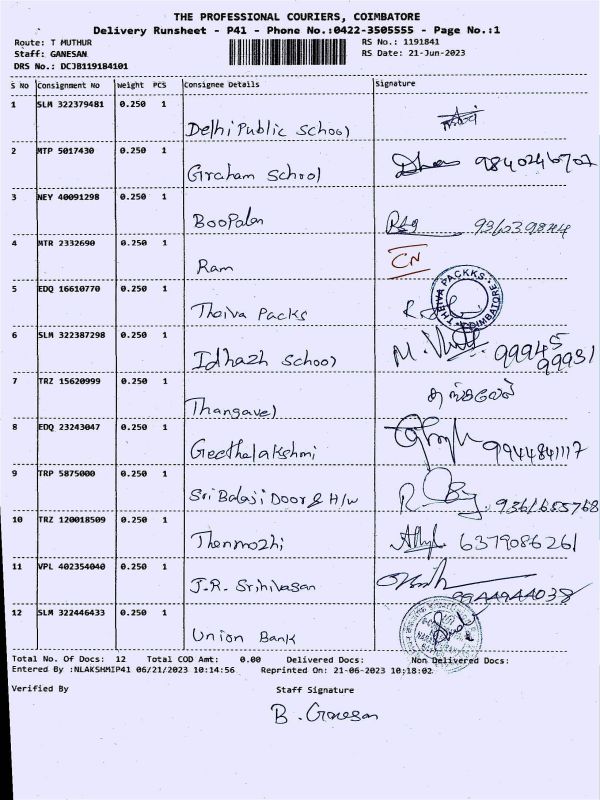 THE PROFESSIONAL COURIERS, COIMBATORE
Delivery Runsheet - P41 - Phone No.:0422-3505555 - Page No.:1
Route: T MUTHUR RS No.: 1191841
Staff: GANESAN RS Date: 21-Jun-2023
DRS No.: DCJB119184101
S No Consignment No Weight PCS Consignee Details Signature
1 SLM 322379481 0.250 1
Delhi Public School
2 MTP 5017430 0.250 1
Graham School
3 NEY 40091298 0.250 1
Boopalan
4 MTR 2332690 0.250 1
Ram CN
5 EDQ 16610770 0.250 1
Thaiva Packs THEIVA PACKKS COIMBATORE
6 SLM 322387298 0.250 1
Idhazh School 99945
99931
7 TRZ 15620999 0.250 1
Thangavel தங்கவேல்
8 EDQ 23243047 0.250 1
Geethalakshmi 9944841117
9 TRP 5875000 0.250 1
Sri Balaji Door & H/W 9361655768
10 TRZ 120018509 0.250 1
Thenmozhi 6379086261
11 VPL 402354040 0.250 1
J.R. Srinivasan 9944944038
12 SLM 322446433 0.250 1
Union Bank
Total No. Of Docs: 12 Total COD Amt: 0.00 Delivered Docs: Non Delivered Docs:
Entered By :NLAKSHMIP41 06/21/2023 10:14:56 Reprinted On: 21-06-2023 10:18:02
Verified By Staff Signature
B. Ganesan